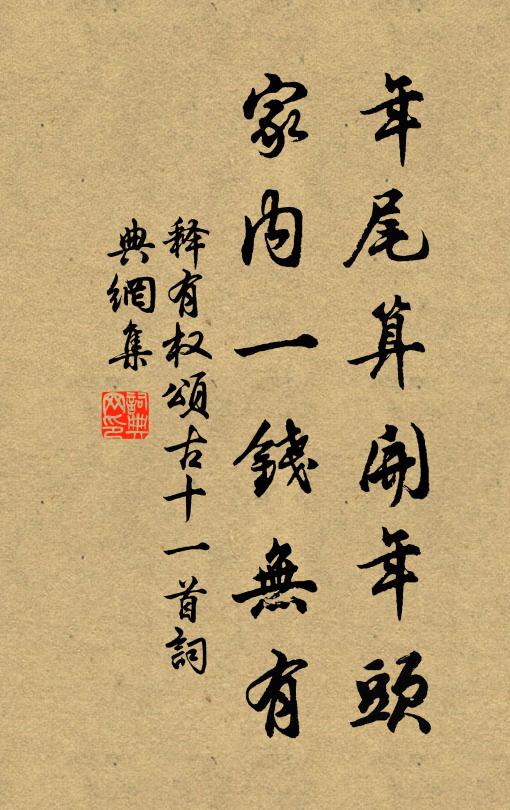 年尾算開年頭
家内一錢無有
释有权頌古十一首詞
典網集
詞典
网印